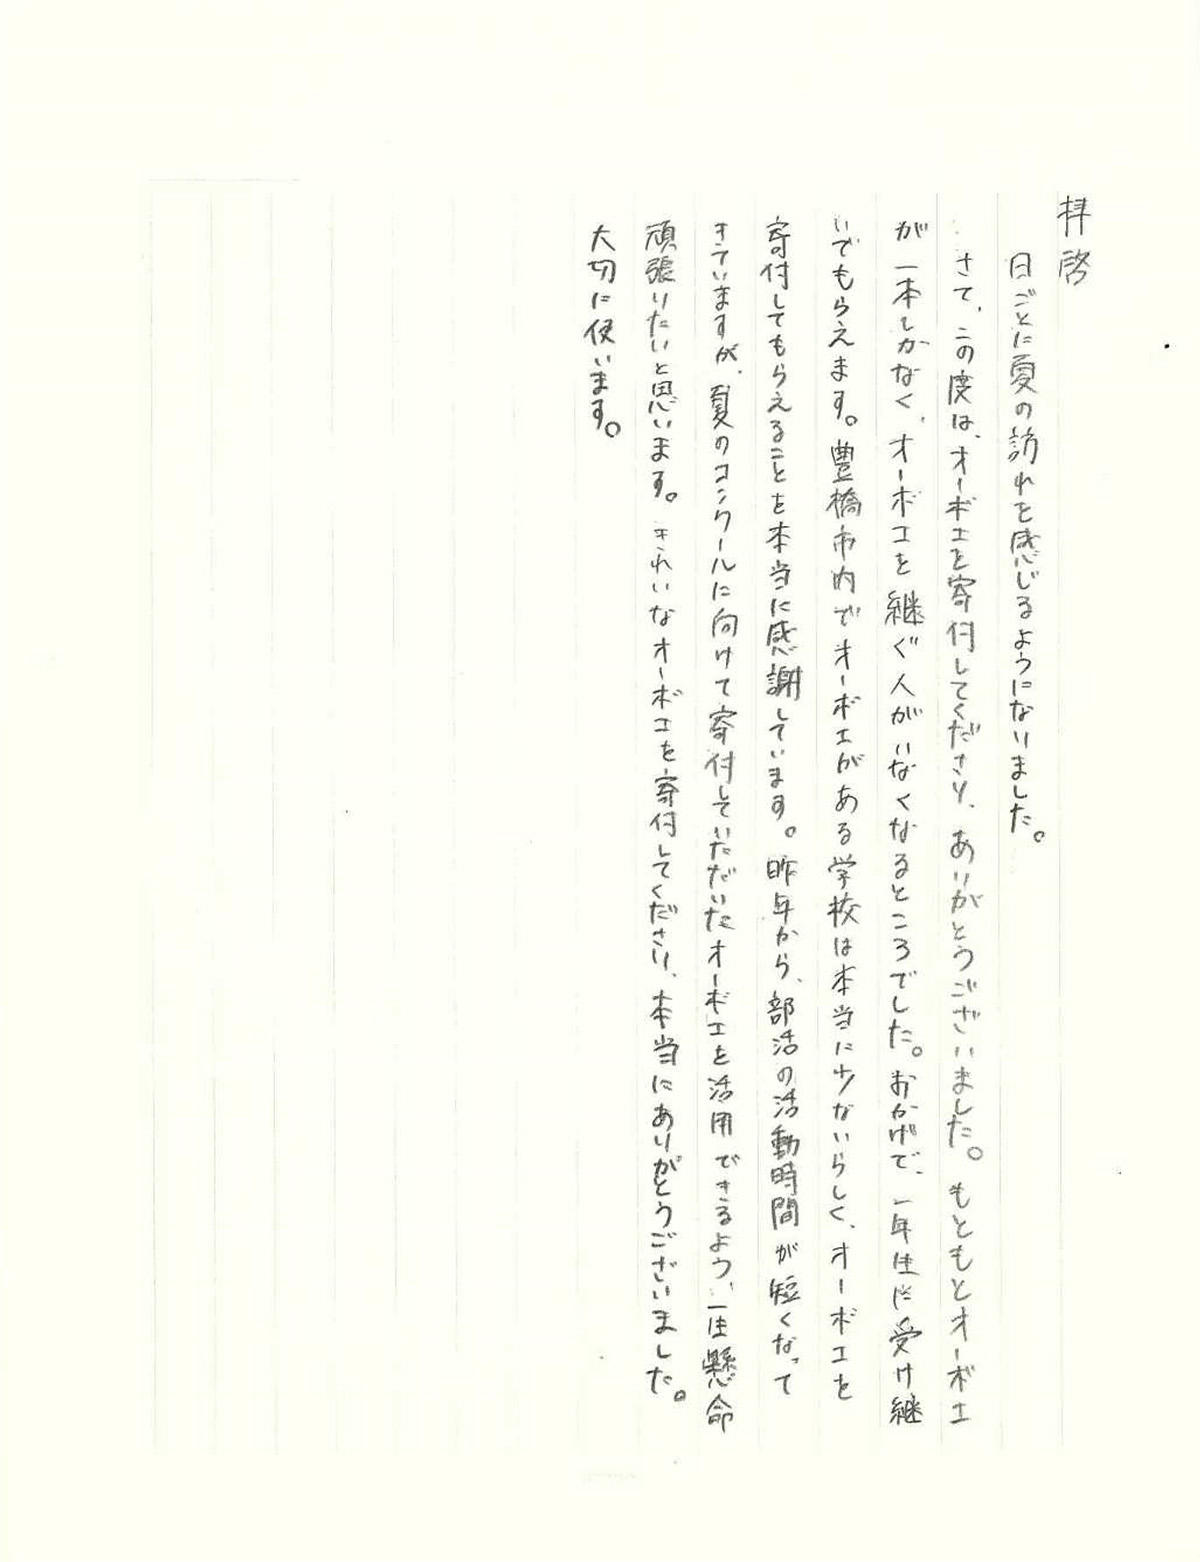 拝啓
日ごとに夏の訪れを感じるようになりました。
さて、この度は、オーボエを寄付してくださり、ありがとうございました。もともとオーボエ
が一本しかなく、オーボエを継ぐ人がいなくなるところでした。おかげで、一年生に受け継
いでもらえます。豊橋市内でオーボエがある学校は本当に少ないらしく、オーボエを
寄付してもらえることを本当に感謝しています。昨年から、部活の活動時間が短くなって
きていますが、夏のコンクールに向けて寄付していただいたオーボエを活用できるよう、一生懸命
頑張りたいと思います。きれいなオーボエを寄付してくださり、本当にありがとうございました。
大切に使います。